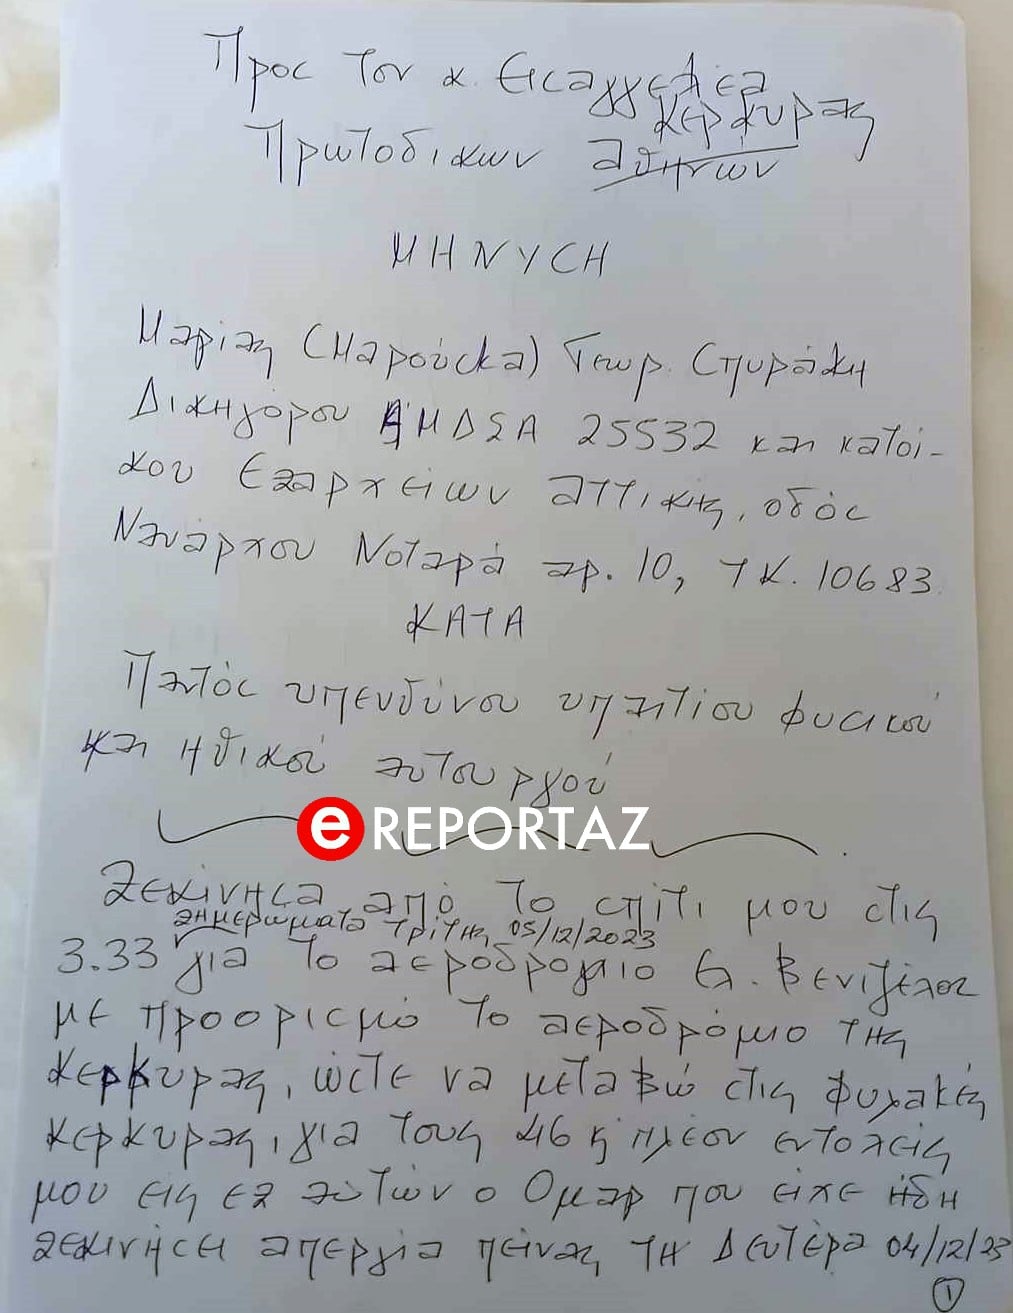 Προς τον κ. Εισαγγελέα
Κερκυρας
Πρωτοδικων Αθηνων
ΜΗΝΥΣΗ
Μαρίας (Μαρούσκα) Γεωρ. Σπυράκη
Δικηγόρου ΑΜΔΣΑ 25532 και κατοί-
κου Εξαρχείων Αττικής, οδός
Ναυάρχου Νοταρά αρ. 10, ΤΚ. 10683
ΚΑΤΑ
Παντός υπευθύνου υπαιτίου φυσικού
και ηθικού αυτουργού
e REPORTAZ
Ξεκίνησα από το σπίτι μου στις
ξημερώματα Τρίτης 05/12/2023
3.33 για το αεροδρομιο Ελ. Βενιζέλος
με προορισμό το αεροδρόμιο της
Κερκυρας, ώστε να μεταβώ στις Φυλακές
Κερκυρας, για τους 46 ή πλέον εντολείς
μου εις εξ αυτών ο Ομαρ που είχε ήδη
ξεκινήσει απεργία πείνας τη Δευτέρα 04/12/23
1